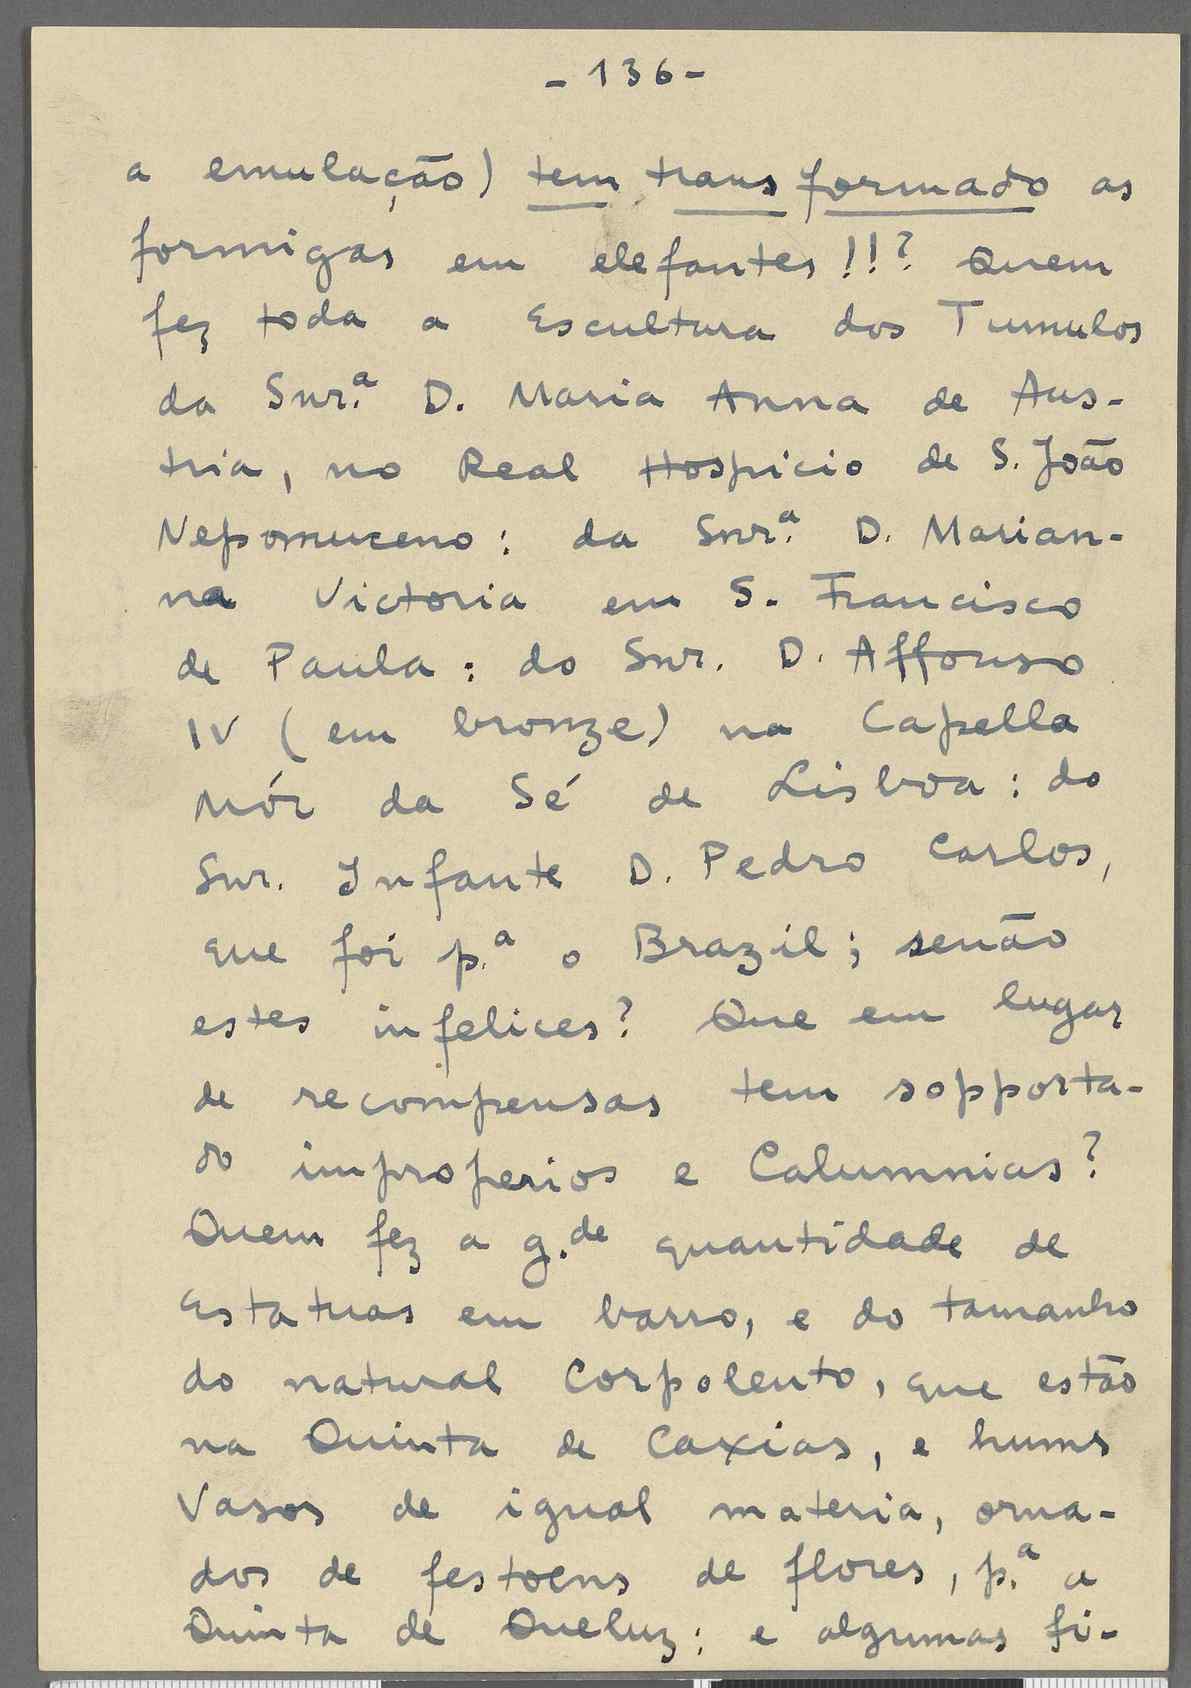 - 136 -
a emulação) tem transformado as
formigas em elefantes!!? Quem
fez toda a Escultura dos Tumulos
da Snr.ª D. Maria Anna de Aus-
tria, no Real Hospicio de S. João
Nepomuceno: da Snr.ª D. Marian-
na Victoria em S. Francisco
de Paula: do Snr. D. Affonso
IV (em bronze) na Capella
Mór da Sé de Lisboa: do
Snr. Infante D. Pedro Carlos,
que foi p.ª o Brazil; senão
estes infelices? Que em lugar
de recompensas tem sopporta-
do improperios e Calumnias?
Quem fez a g.de quantidade de
Estatuas em barro, e do tamanho
do natural Corpolento, que estão
na Quinta de Caxias, e hums
Vasos de igual materia, orna-
dos de festoens de flores, p.ª a
Quinta de Queluz: e algumas fi-